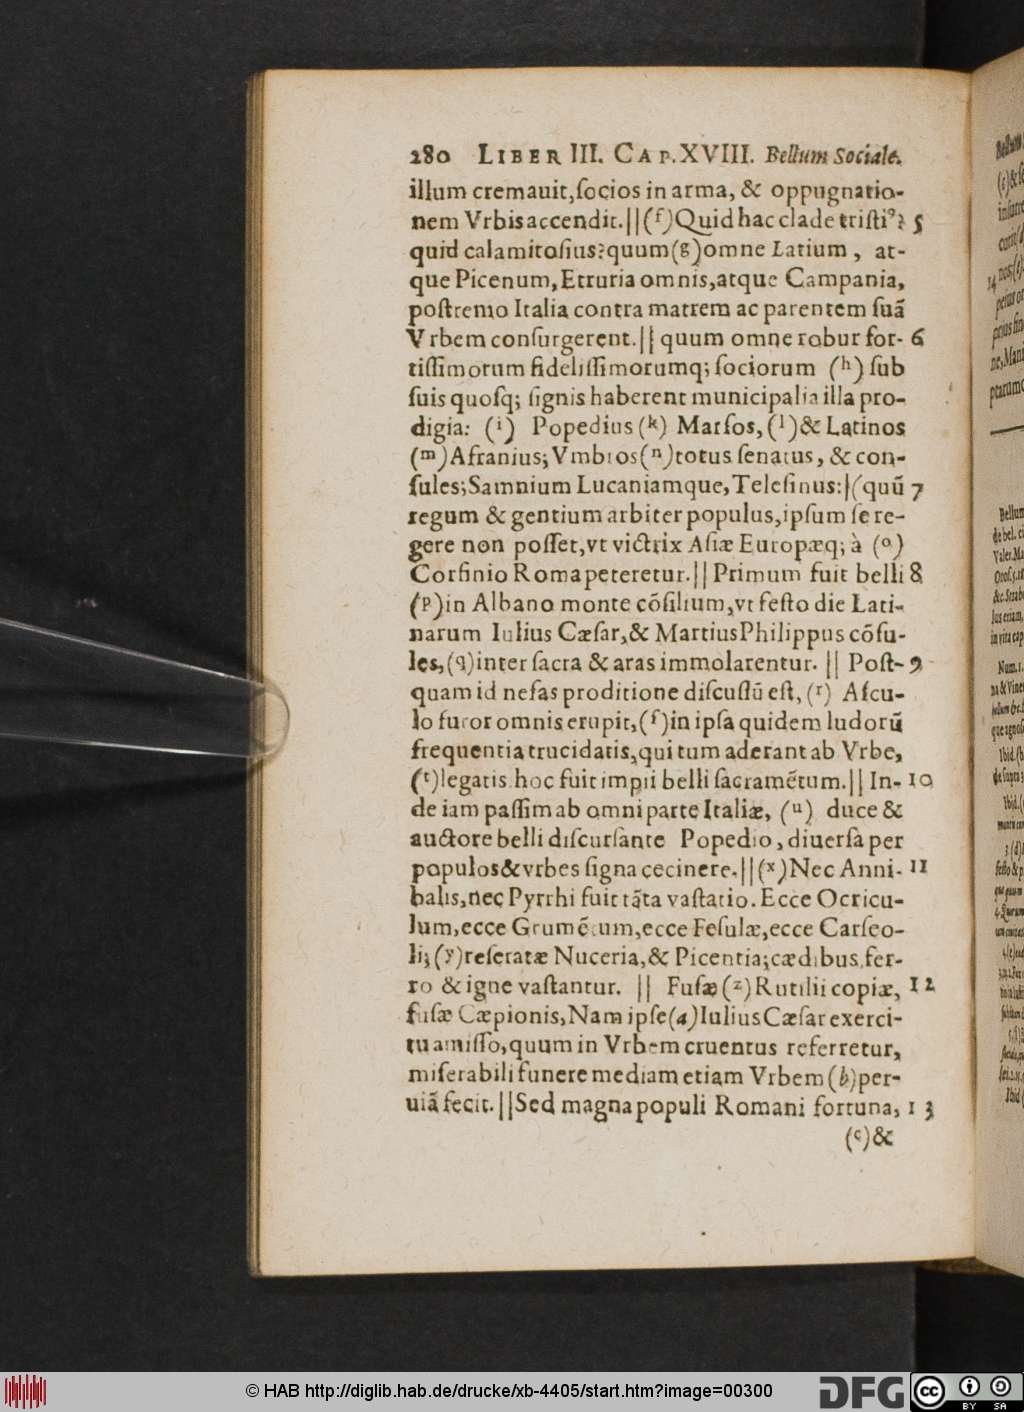 280 LIBER III. CAP. XVIII. Bellum Sociale.
illum cremauit, ſocios in arma, & oppugnatio-
nem Vrbis accendit. || (f) Quid hac clade triſti⁹? 5
quid calamitoſius? quum (g) omne Latium, at-
que Picenum, Etruria omnis, atque Campania,
poſtremo Italia contra matrem ac parentem ſuã
Vrbem conſurgerent. || quum omne robur for- 6
tiſſimorum fideliſſimorumq; ſociorum (h) ſub
ſuis quoſq; ſignis haberent municipalia illa pro-
digia: (i) Popedius (k) Marſos, (l) & Latinos
(m) Afranius; Vmbros (n) totus ſenatus, & con-
ſules; Samnium Lucaniamque, Teleſinus: || (quũ 7
regum & gentium arbiter populus, ipſum ſe re-
gere non poſſet, vt victrix Aſiæ Europæq; à (o)
Corfinio Roma peteretur. || Primum fuit belli 8
(p) in Albano monte cõſilium, vt feſto die Lati-
narum Iulius Cæſar, & Martius Philippus cõſu-
les, (q) inter ſacra & aras immolarentur. || Poſt- 9
quam id nefas proditione diſcuſſũ eſt, (r) Aſcu-
lo furor omnis erupit, (ſ) in ipſa quidem ludorũ
frequentia trucidatis, qui tum aderant ab Vrbe,
(t) legatis. hoc fuit impii belli ſacramẽtum. || In- 10
de iam paſſim ab omni parte Italiæ, (u) duce &
auctore belli diſcurſante Popedio, diuerſa per
populos & vrbes ſigna cecinere. || (x) Nec Anni- 11
balis, nec Pyrrhi fuit tãta vaſtatio. Ecce Ocricu-
lum, ecce Grumẽtum, ecce Feſulæ, ecce Carſeo-
li; (y) reſeratæ Nuceria, & Picentia; cædibus, fer-
ro & igne vaſtantur. || Fuſæ (z) Rutilii copiæ, 12
fuſæ Cæpionis, Nam ipſe (a) Iulius Cæſar exerci-
tu amiſſo, quum in Vrbem cruentus referretur,
miſerabili funere mediam etiam Vrbem (b) per-
uiã fecit. || Sed magna populi Romani fortuna, 13
(c) &
© HAB http://diglib.hab.de/drucke/xb-4405/start.htm?image=00300
DFG
BY SA